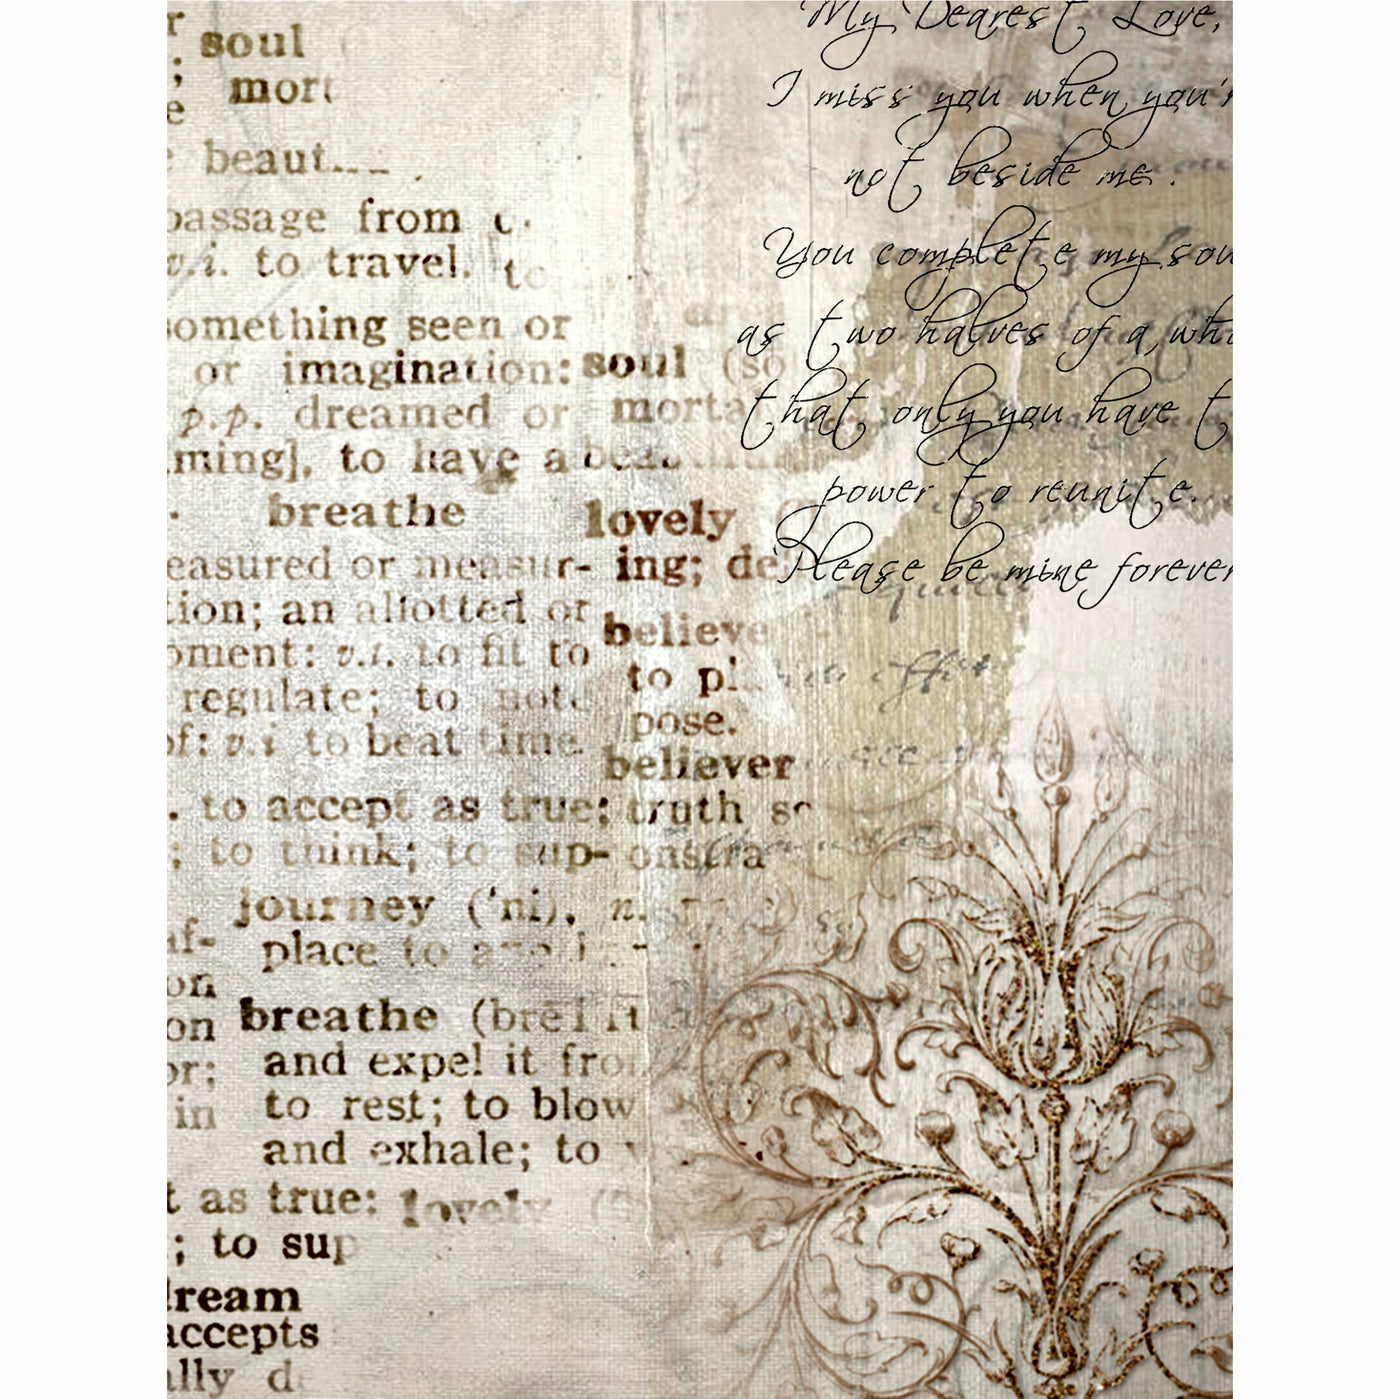 soul
;
e
beaut
passage from
v.i. to travel. to
something seen or
or imagination: soul (so
p.p. dreamed or morta
ming], to have a
breathe lovely
easured or measur- ing; de
tion; an allotted or believe
oment: v.i. to fit to to pl
regulate; to note pose.
of: v.i to beat time believer
. to accept as true; truth
; to think; to sup- onstra
journey ('ni), n.
af- place to
on
on breathe
or; and expel it from
in to rest; to blow
and exhale; to
t as true: lovely
; to sup
dream
accepts
ally de
My Dearest Love,
I miss you when you'r
not beside me.
You complete my sou
as two halves of a who
that only you have t
power to reunite.
Please be mine forever